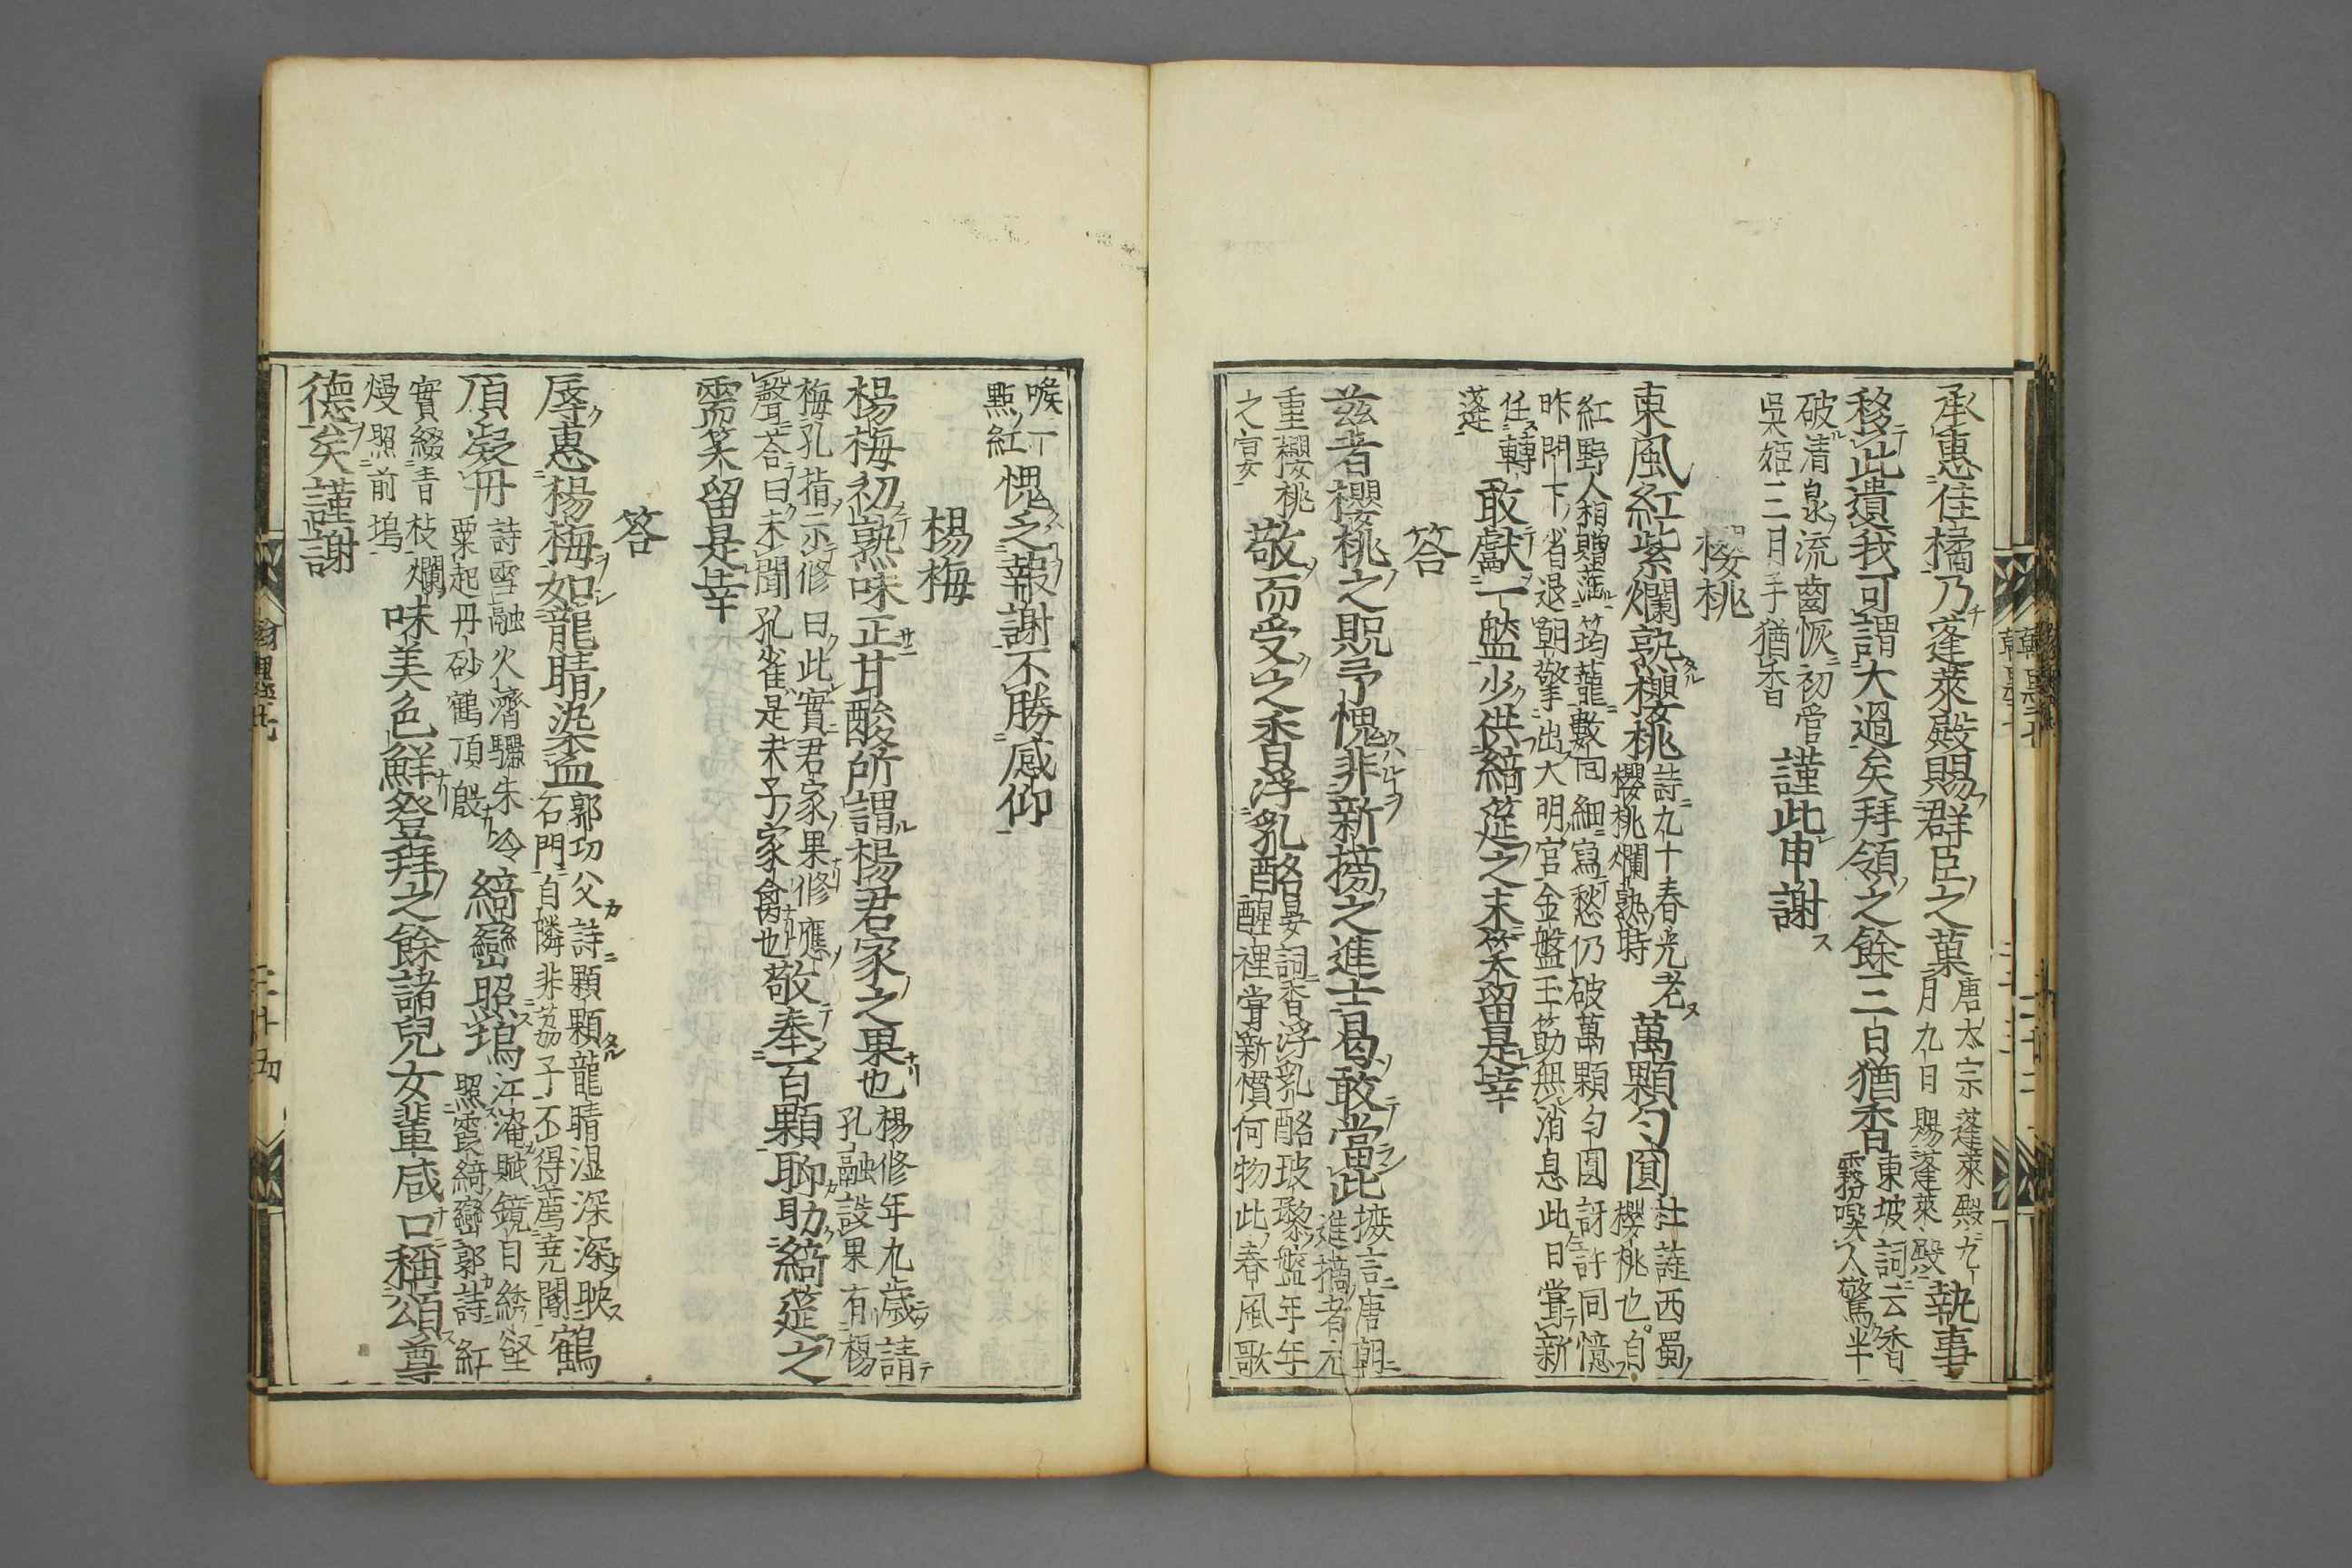 承惠佳橘乃蓬萊殿賜群臣之菓唐太宗蓬萊殿九月九日賜蓬萊殿執事
移此遺我可謂大過矣拜領之餘三日猶香東坡詞云香霧噀人驚半
破清泉流齒恢初嘗吳姬三月手猶香謹此申謝
櫻桃
東風紅紫爛熟櫻桃詩九十春光老櫻桃爛熟時萬顆勻圓杜詩西蜀櫻桃也自
紅野人相贈滿筠籠數回細寫愁仍破萬顆勻圓訝許同憶
昨門下省退朝擎出大明宮金盤玉筯無消息此日嘗新
任轉蓬敢獻一盤少供綺筵之末笑留是幸
答
茲者櫻桃之貺予愧非新榜之進士曷敢當此摭言唐朝進摘者元
重櫻桃之宴敬而受之香浮乳酪晏詞香浮乳酪玻瓈盤年年醒裡嘗新慣何物比春風歌
喉一點紅愧之報謝不勝感仰
楊梅
楊梅初熟味正甘酸所謂楊君家之果也楊修年九歲請孔融設果有楊
梅孔指示修曰此實君家果修應聲荅曰未聞孔雀是夫子家禽也敬奉一百顆聊助綺筵之
需笑留是幸
答
辱惠楊梅如龍睛染盃郭功父詩顆顆龍睛湿深深映石門自隣非荔子不得薦堯闕鶴
頂凝丹詩雪融火濟驪朱冷粟起丹砂鶴頂殷綺巒照塢江淹賦鏡日綉壑照霞綺巒郭詩紅
實綴青枝爛熳照前塢味美色鮮登拜之餘諸兒女輩咸口稱頌尊
德矣謹謝
二十四